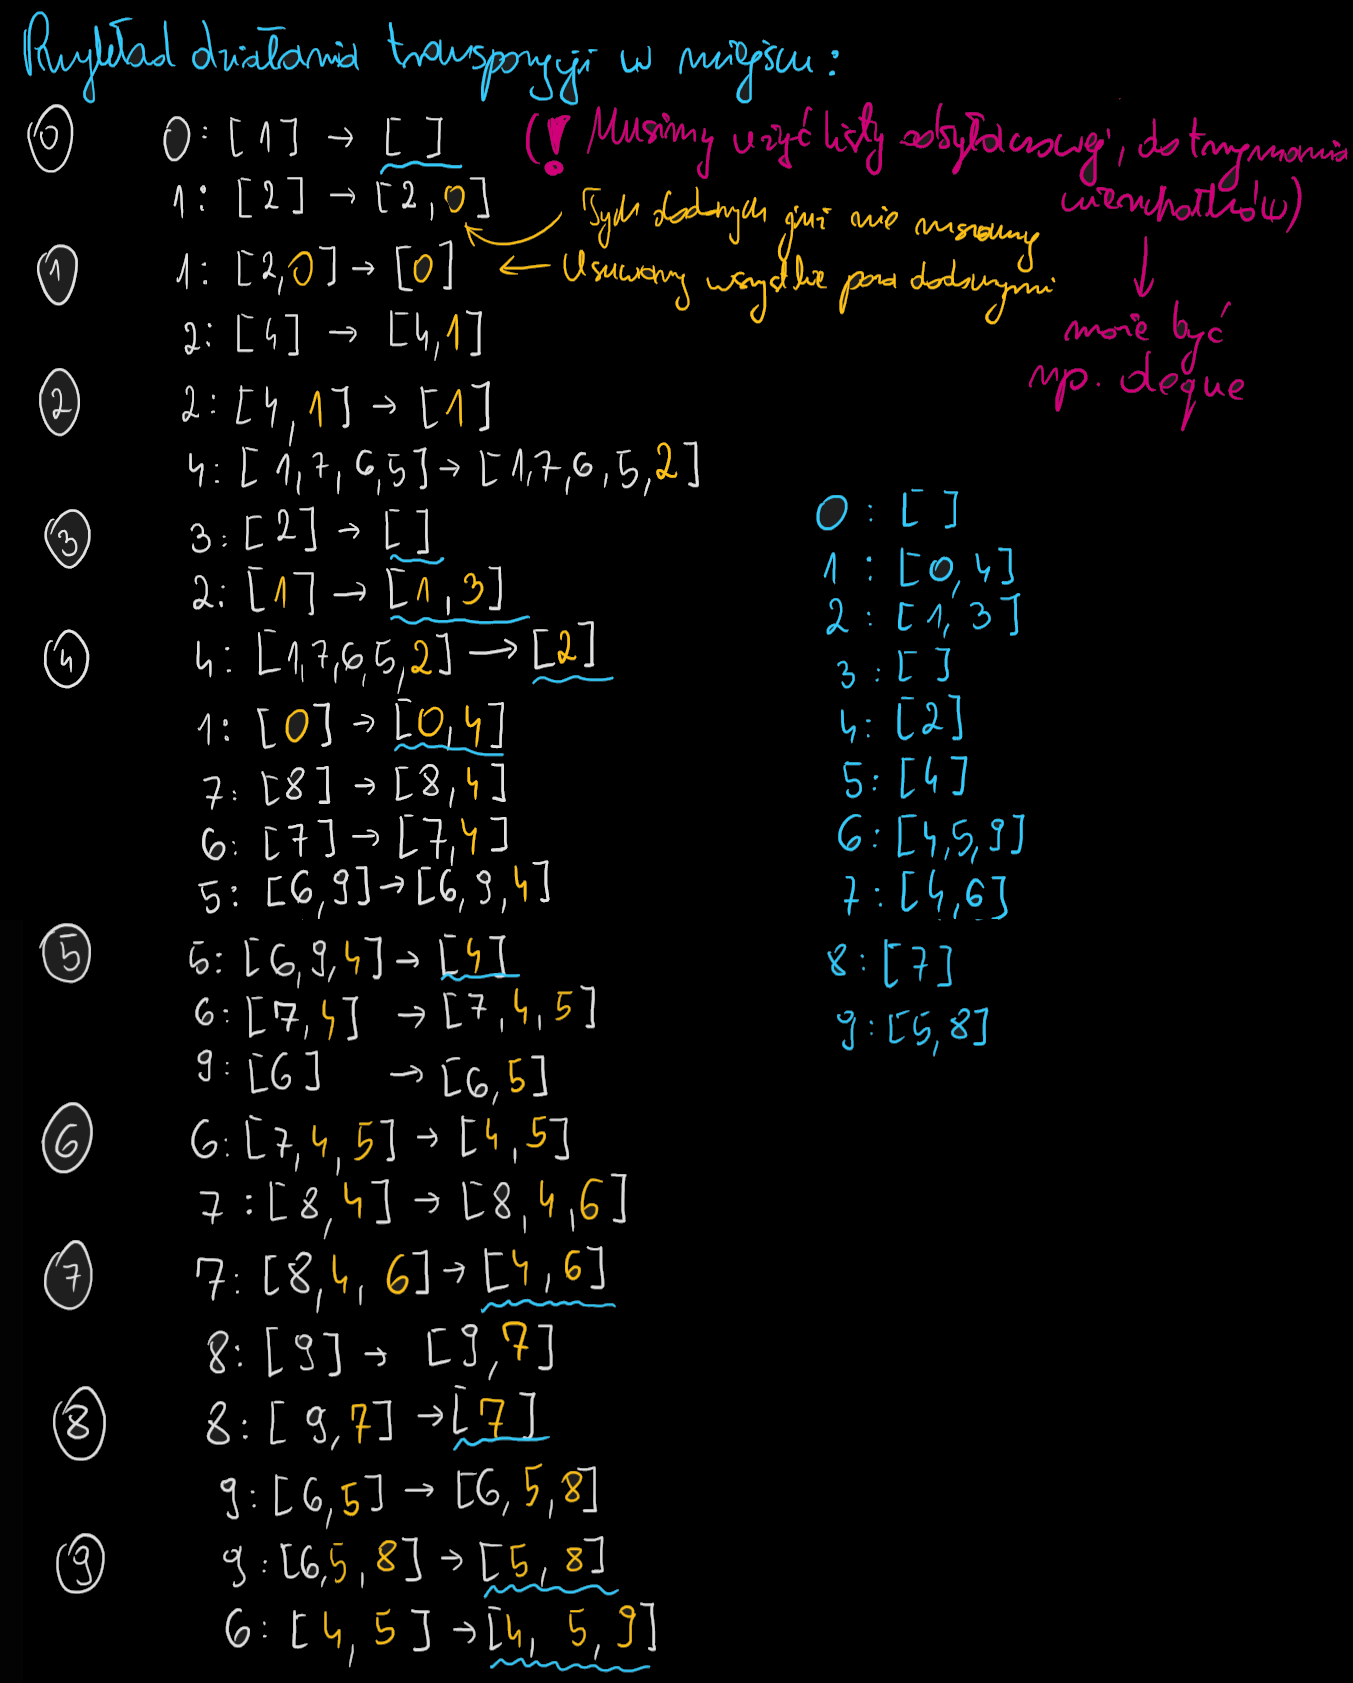 Przykład działania transpozycji w miejscu:
0 0: [1] → [ ] (! Musimy użyć listy odsyłaczowej, do trzymania
wierzchołków)
1: [2] → [2,0] Tych dodanych już nie ruszamy
1 1: [2,0] → [0] ← Usuwamy wszystkie poza dodanymi
2: [4] → [4,1] może być
2 2: [4,1] → [1] np. deque
4: [1,7,6,5] → [1,7,6,5,2]
3 3: [2] → [ ]
2: [1] → [1,3]
4 4: [1,7,6,5,2] → [2]
1: [0] → [0,4]
7: [8] → [8,4]
6: [7] → [7,4]
5: [6,9] → [6,9,4]
5 5: [6,9,4] → [4]
6: [7,4] → [7,4,5]
9: [6] → [6,5]
6 6: [7,4,5] → [4,5]
7: [8,4] → [8,4,6]
7 7: [8,4,6] → [4,6]
8: [9] → [9,7]
8 8: [9,7] → [7]
9: [6,5] → [6,5,8]
9 9: [6,5,8] → [5,8]
6: [4,5] → [4,5,9]
0: [ ]
1: [0,4]
2: [1,3]
3: [ ]
4: [2]
5: [4]
6: [4,5,9]
7: [4,6]
8: [7]
9: [5,8]